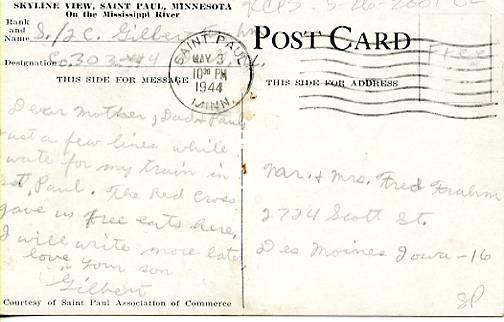 SKYLINE VIEW, SAINT PAUL, MINNESOTA
On the Mississippi River
RCP5 5-26-2001
Rank
and
Name S./2 C. Gilbert
Designation Co. 303-44
THIS SIDE FOR MESSAGE
SAINT PAUL,
MAY 3
10 30 PM
1944
MINN.
POST CARD
Free
THIS SIDE FOR ADDRESS
Dear Mother, Dad & Paul
Just a few lines while
wate for my train in
St. Paul. The Red Cross
gave us free eats here,
I will write more later
love your son
Gilbert
Mr. & Mrs. Fred Frahm
2724 Scott St.
Des Moines Iowa - 16
SP
Courtesy of Saint Paul Association of Commerce